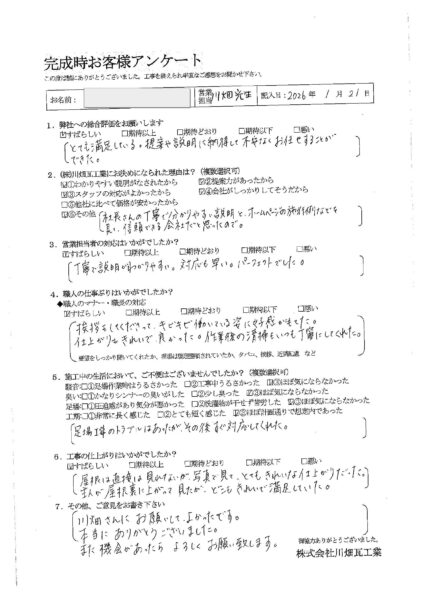 完成時お客様アンケート
この度は誠にありがとうございました。工事を終えられ率直なご感想をお聞かせ下さい。
お名前: 営業担当 川畑光生 記入日:2026年 1月21日
1.弊社への総合評価をお願いします
☑すばらしい □期待以上 □期待どおり □期待以下 □悪い
とても満足している。提案や説明に納得して不安なくお任せすることが
できた。
2.(株)川畑瓦工業にお決めになられた理由は?(複数選択可)
☑①わかりやすい説明がなされたから ☑②提案力があったから
☑③スタッフの対応がよかったから ☑④会社がしっかりしてそうだから
□⑤他社に比べて価格が安かったから
☑⑥その他 社長さんの丁寧で分かりやすい説明と、ホームページの施工例などを
見て、信頼できる会社だと思ったので。
3.営業担当者の対応はいかがでしたか?
☑すばらしい □期待以上 □期待どおり □期待以下 □悪い
丁寧で説明が分かりやすい。対応も早い。パーフェクトでした。
4.職人の仕事ぶりはいかがでしたか?
◆職人のマナー・職長の対応
☑すばらしい □期待以上 □期待どおり □期待以下 □悪い
挨拶もしてくださって、キビキビ働いている姿に好感がもてた。
仕上がりもきれいで良かった。作業後の清掃もいつも丁寧にしてくれた。
要望をしっかり聞いてくれたか、現場は整理整頓されていたか、タバコ、挨拶、近隣配慮 など
5.施工中の生活において、ご不便はございませんでしたか?(複数選択可)
騒音:□①足場作業時はうるさかった □②工事中うるさかった ☑③ほぼ気にならなかった
臭い:□①かなりシンナーの臭いがした □②少し臭った ☑③ほぼ気にならなかった
足場:□①圧迫感があり気分が悪かった □②洗濯物が干せず苦労した ☑③ほぼ気にならなかった
工期:□①非常に長く感じた □②とても短く感じた ☑③ほぼ計画通りで想定内であった
足場工事のトラブルはあったが、その後すぐ対応してくれた。
6.工事の仕上がりはいかがでしたか?
☑すばらしい □期待以上 □期待どおり □期待以下 □悪い
屋根は直接は見れないが、写真で見て、とてもきれいな仕上がりだった。
主人が屋根裏に上がって見たが、どこもきれいで満足していた。
7.その他、ご意見をお書き下さい
川畑さんにお願いして、よかったです。
本当にありがとうございました。
また機会があったらよろしくお願い致します。
御協力ありがとうございました。
株式会社川畑瓦工業